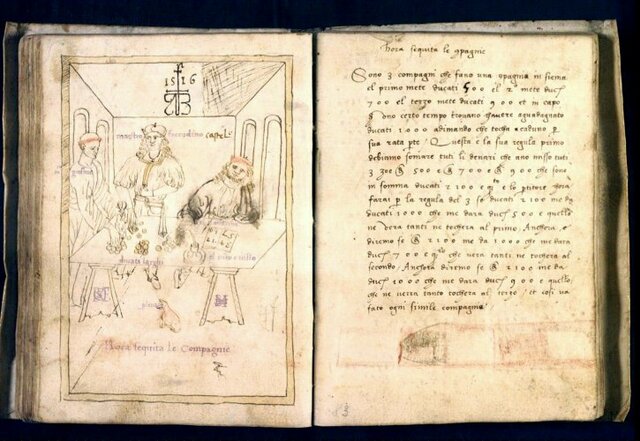 1516
mastro
ducati larghi
Hora sequita le Compagnie
hora sequita le 9pagnie
Sono 3 compagni che fano una 9pagnia in siema
el primo mete ducati 500 el 2 mete duct
700 el terzo mete ducati 900 et in capo
uno certo tempo trovano havere aguadagnato
ducati 1000 adimando che tocha a caduno per
sua rata pte / Questa e la sua regula primo
debiamo somare tuti li denari che ano misso tuti
3 zoe @ 500 e @ 700 e @ 900 che sono
in somma ducati 2100 e qto e lo ptitore hora
farai p la regula del 3 se ducati 2100 me da
ducati 1000 che me dara duct 500 e quello
ne vera tanti ne tochera al primo. Anchora
diremo se @ 2100 me da 1000 che me dara
duct 700 e qto che vera tanti ne tochera al
secondo / Anchora diremo se @ 2100 me da
duct 1000 che me dara duct 900 e quello
che ne verra tanto tochera al terzo / et cosi va
fato ogni simile compagnia
83